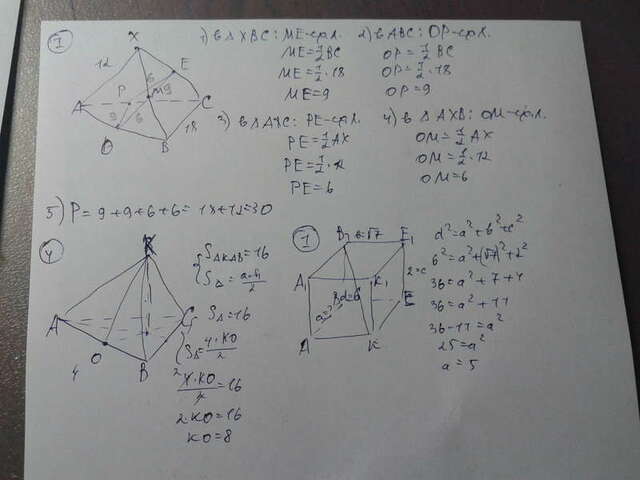 1
X
12
6
E
A
P
M
9
C
9
6
18
O
B
1) в Δ XBC: ME-ср.л.
ME=1/2 BC
ME=1/2·18
ME=9
2) в ABC: OP-ср.л.
OP=1/2 BC
OP=1/2·18
OP=9
PE-ср.л.
PE=1/2 AX
PE=1/2·12
PE=6
4) в Δ AXB: OM-ср.л.
OM=1/2 AX
OM=1/2·12
OM=6
5) P=9+9+6+6=18+12=30
4
K
A
C
O
4
B
{ SΔKAB=16
SΔ=a·h/2
{ SΔ=16
SΔ=4·KO/2
4·KO/2=16
2·KO=16
KO=8
B1
b=√7
E1
A1
K1
2=c
B
d=6
E
a=?
A
K
d²=a²+b²+c²
6²=a²+(√7)²+2²
36=a²+7+4
36=a²+11
36-11=a²
25=a²
a=5